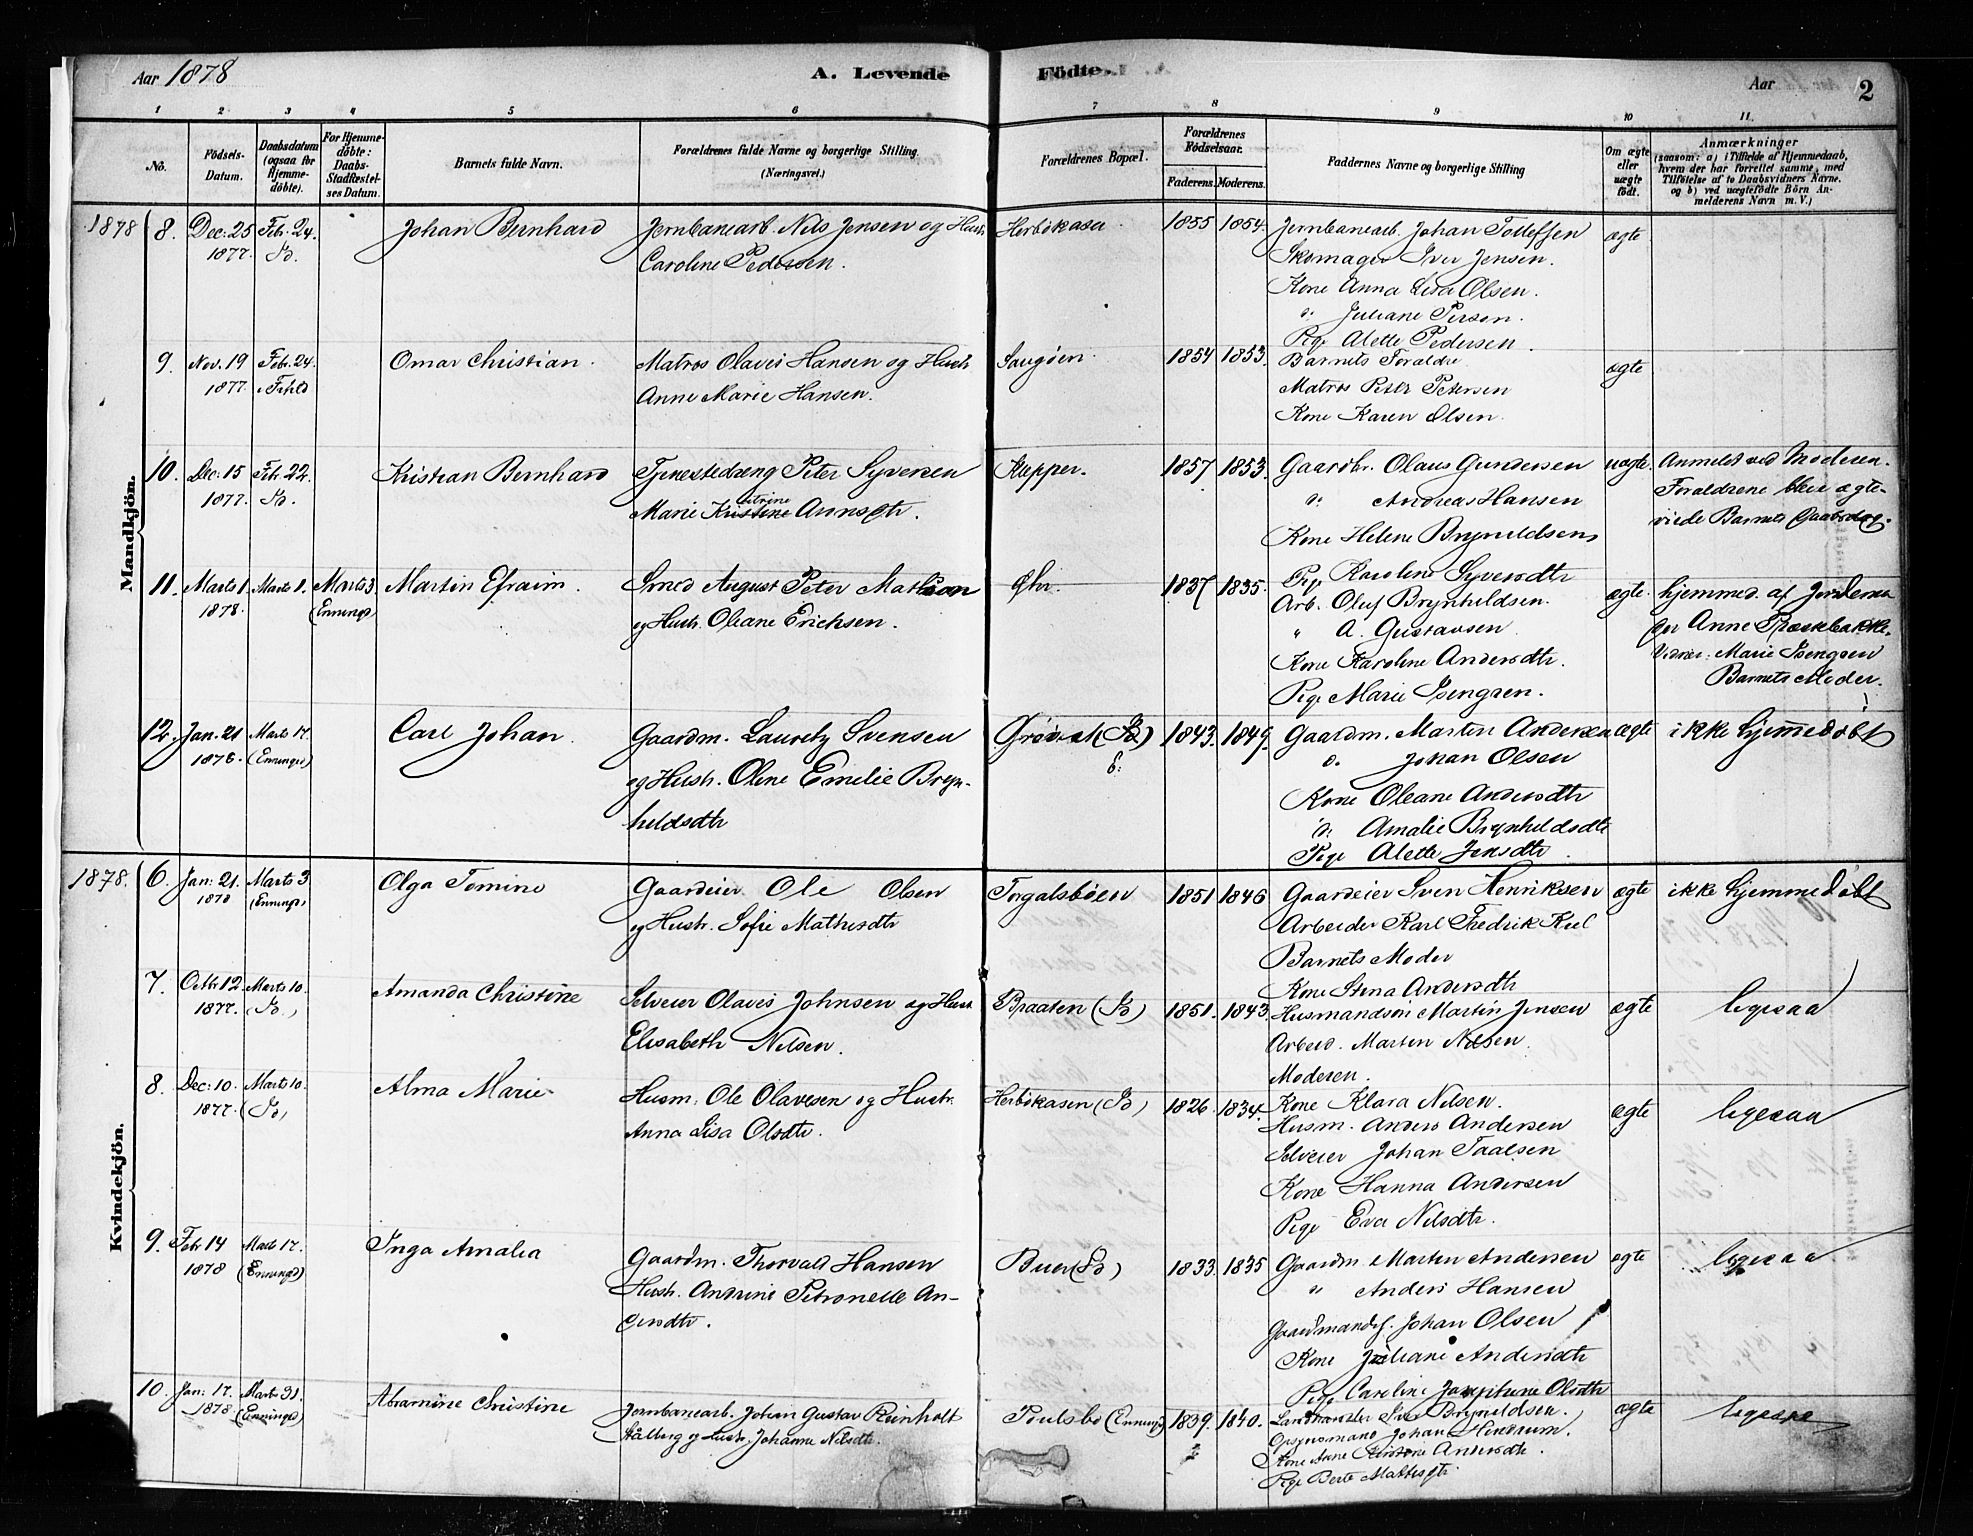 Aar 1878
A. Levende
Födte.
Aar
2
1 2 3 4 5 6 7 8 9 10 11.
No.
Födsels-
Datum.
Daabsdatum
(ogsaa for
Hjemme-
döbte).
For Hjemme-
döbte:
Daabs-
Stadfæstel-
ses Datum.
Barnets fulde Navn.
Forældrenes fulde Navne og borgerlige Stilling.
(Næringsvei.)
Forældrenes Bopæl.
Forældrenes
Födselsaar.
Faderens. Moderens.
Faddernes Navne og borgerlige Stilling
Om ægte
eller
uægte
födt.
Anmærkninger
(saasom: a) i Tilfælde af Hjemmedaab,
hvem der har forrettet samme, med
Tilföielse af to Daabsvidners Navne,
og b) ved uægtefödte Börn An-
melderens Navn m. V.)
Mandkjön.
1878
8. Dec: 25
1877.
Feb. 24.
Johan Bernhard
Jernbanearb. Nils Jensen og Hustr
Caroline Pedersen.
1855 1854.
Jernbanearb. Johan Tollefsen
Skomager Iver Jensen.
Kone Anna Lisa Olsen.
Juliane Persen.
Pige Alette Pedersen
ægte
9. Nov. 19
1877.
Febr. 24.
Omar Christian.
Matros Olaves Hansen og Hustr
Anne Marie Hansen.
Saugøen.
1854 1853.
Barnets Foraldre
Matros Peter Petersen
Kone Karen Olsen.
ægte
10. Dec. 15
1877.
Feb. 22.
Kristian Bernhard
Tjenestedreng Peter Syversen
Marie Kristine Arnsdtr.
Klepper.
1857 1853.
Gaardbr. Olaus Gundersen
Andreas Hansen
Kone Helene Brynildsens
Pige Karoline Syversdtr
uægte.
Anmeldt ved Moderen.
Foraldrene bleve ægte-
viede Barnets Daabsdag.
11. Marts 1.
1878.
Marts 1.
Marts 3
(Enningd)
Martin Efraim.
Smed August Peter Matson
og Hustr. Oleane Erichsen.
Øhr.
1837 1835.
Arb. Oluf Brynhildsen.
" A. Gustavsen
Kone Karoline Andersdtr.
Pige Marie Isengren.
ægte.
hjemmed. af Jordemo
der Anne Præstebakke.
Vidner: Marie Isengren
Barnets Moder.
12. Jan. 21
1878.
Marts 17.
(Enningd)
Carl Johan.
Gaardm. Lauretz Svensen
og Hustr. Oline Emelie Bryn-
hildsdtr
1843. 1849.
Gaardm. Martin Andersen
Johan Olsen
Kone Oleane Andersdtr
Amalie Brynhildsdtr
Pige Alette Jensdtr.
ægte
ikke hjemmedøbt
Kvindekjön.
1878.
6. Jan: 21.
1878
Marts 3
(Enningd)
Olga Tomine
Gaardeier Ole Olsen
og Hustr. Sofie Mathisdtr
Ingalsbøen
1851 1846
Gaardeier Sven Henriksen
Arbeider Karl Fredrik Kiel
Barnets Moder
Kone Stina Andersdtr
ægte
ikke hjemmedøbt
7. Octbr. 12
1877.
Marts 10.
Amanda Christine
Selveier Olaves Johnsen og Hustr
Elisabeth Nilsen.
Braaten
1851. 1843.
Husmandssøn Martin Jensen
Arbeid. Martin Nilsen.
Moderen.
Kone Klara Nilsen.
ægte
ligesaa
8. Dec: 10.
1877.
Marts 10.
Alma Marie
Husm. Ole Olavesen og Hustr.
Anna Lisa Olsdtr.
Herbokasen
1826. 1834.
Husm. Anders Andersen
Selveier Johan Taalsen
Kone Hanna Andersen
Pige Eva Nilsdtr.
ægte
ligesaa
9. Febr 14
1878
Marts 17.
(Enningd)
Inga Amalia
Gaardm. Thorvald Hansen
Hustr. Andrine Petronelle An-
dersdtr.
Buer
1833. 1835
Gaardm. Martin Andersen
" Anders Hansen
Gaardmands. Johan Olsen
Kone Juliane Andersdtr
Pige Caroline Josephine Olsdtr
ægte
ligesaa
10. Jan: 17.
1878.
Marts 31.
(Enningd)
Abramine Christine
Jernbanearb. Johan Gustav Reinholt
Aalberg og Hustr. Johanne Nilsdtr.
Poulsbo (Enningd)
1839. 1840.
Landhandler Iver Brynildsen.
Opsynsmand Johan Hindrum.
Kone Anne Kirstine Andersdtr.
Pige Berte Mathisdtr.
ægte
ligesaa